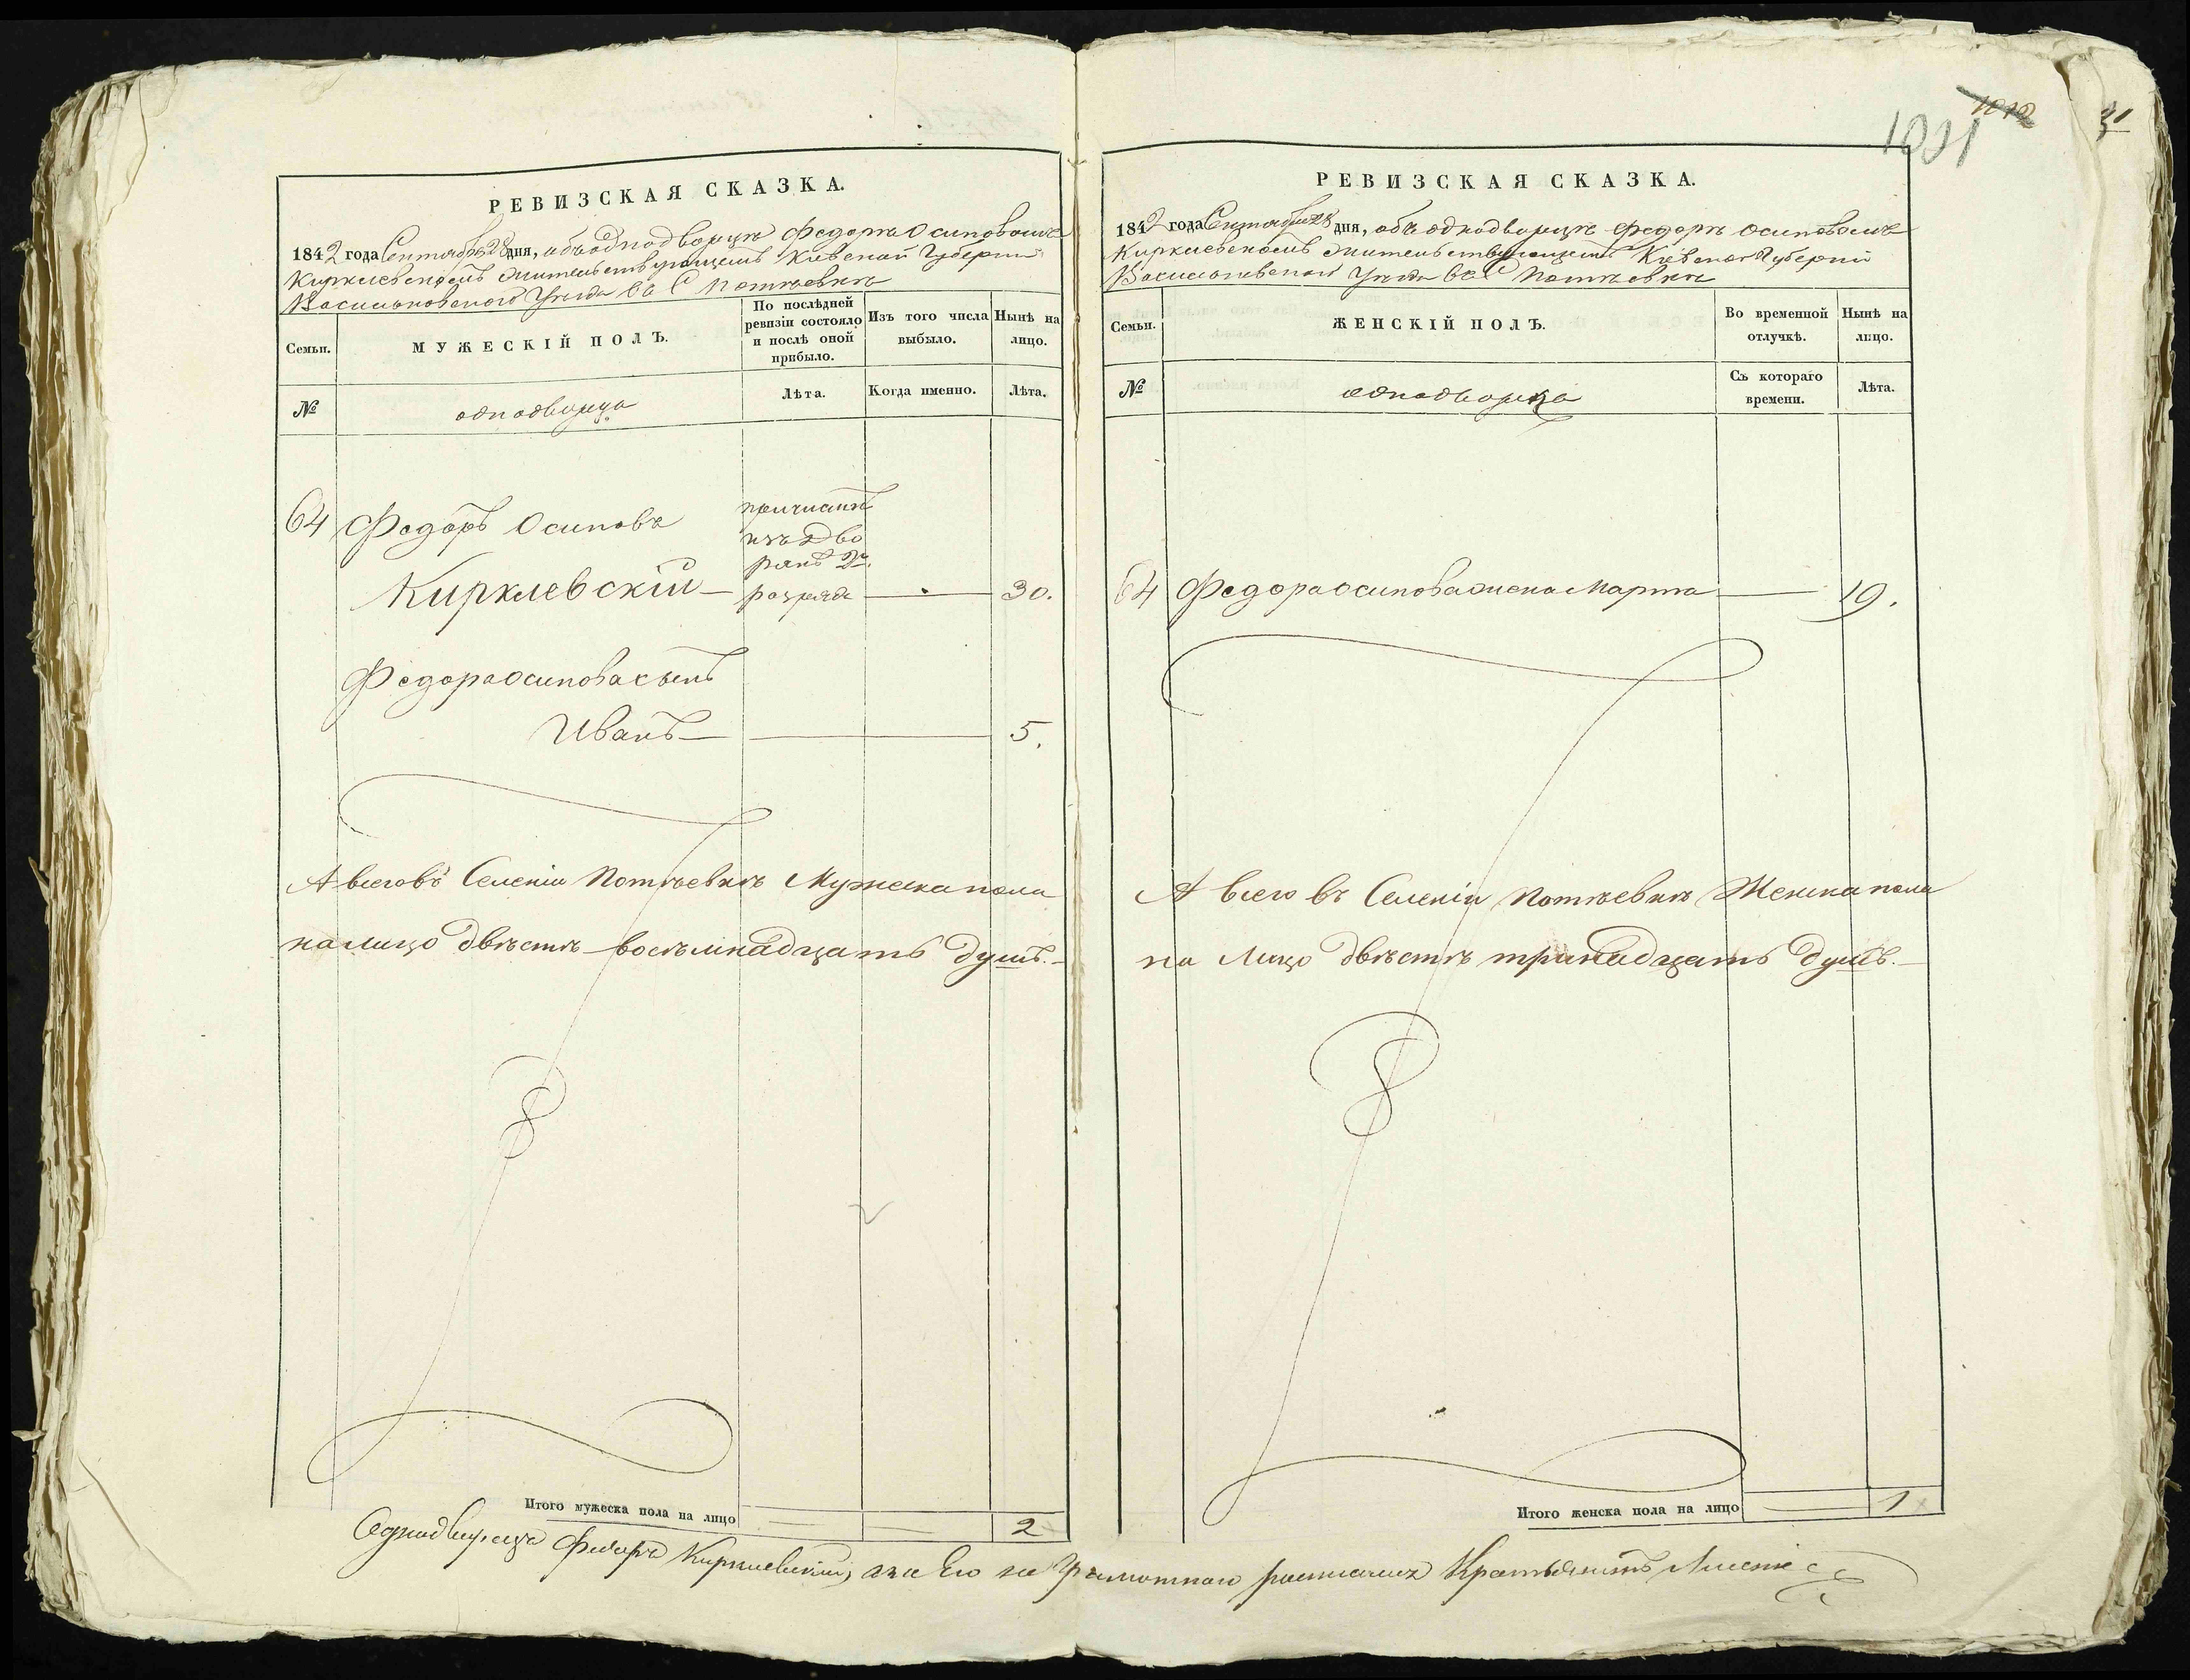 РЕВИЗСКАЯ СКАЗКА.
1842 года Сентября 28 дня, объ однодворцѣ Федорѣ Осиповомъ
Киркиевскомъ жительствующемъ Кіевской Губерніи
Васильковского Уезда въ С Потіевкѣ
Семьи.
МУЖЕСКІЙ ПОЛЪ.
По послѣдней ревизіи состояло и послѣ оной прибыло.
Изъ того числа выбыло.
Нынѣ на лицо.
№
однодворца
Лѣта.
Когда именно.
Лѣта.
64 Федоръ Осиповъ
причисленъ
изъ Дво
рянъ 2го
Киркиевскій — разряда — 30.
Федора Осипова сынъ
Иванъ — 5.
А всего въ Селеніи Потіевкѣ Мужеска пола
на лицо двѣстѣ восѣмнадцать душъ.
Итого мужеска пола на лицо 2
1001
1010
РЕВИЗСКАЯ СКАЗКА.
1842 года Сентября 28 дня, объ однодворцѣ Федорѣ Осиповомъ
Киркиевскомъ жительствующемъ Кіевской Губерніи
Васильковского Уезда въ С Потіевкѣ
Семьи.
ЖЕНСКІЙ ПОЛЪ.
Во временной отлучкѣ.
Нынѣ на лицо.
№
однодворца
Съ котораго времени.
Лѣта.
64 Федора Осипова жена Марта — 19.
А всего въ Селеніи Потіевкѣ Женска пола
на Лицо двѣстѣ тринадцать душъ.
Итого женска пола на лицо 1
Однодворецъ Федоръ Киркиевскій, а за Его не Грамотного росписался